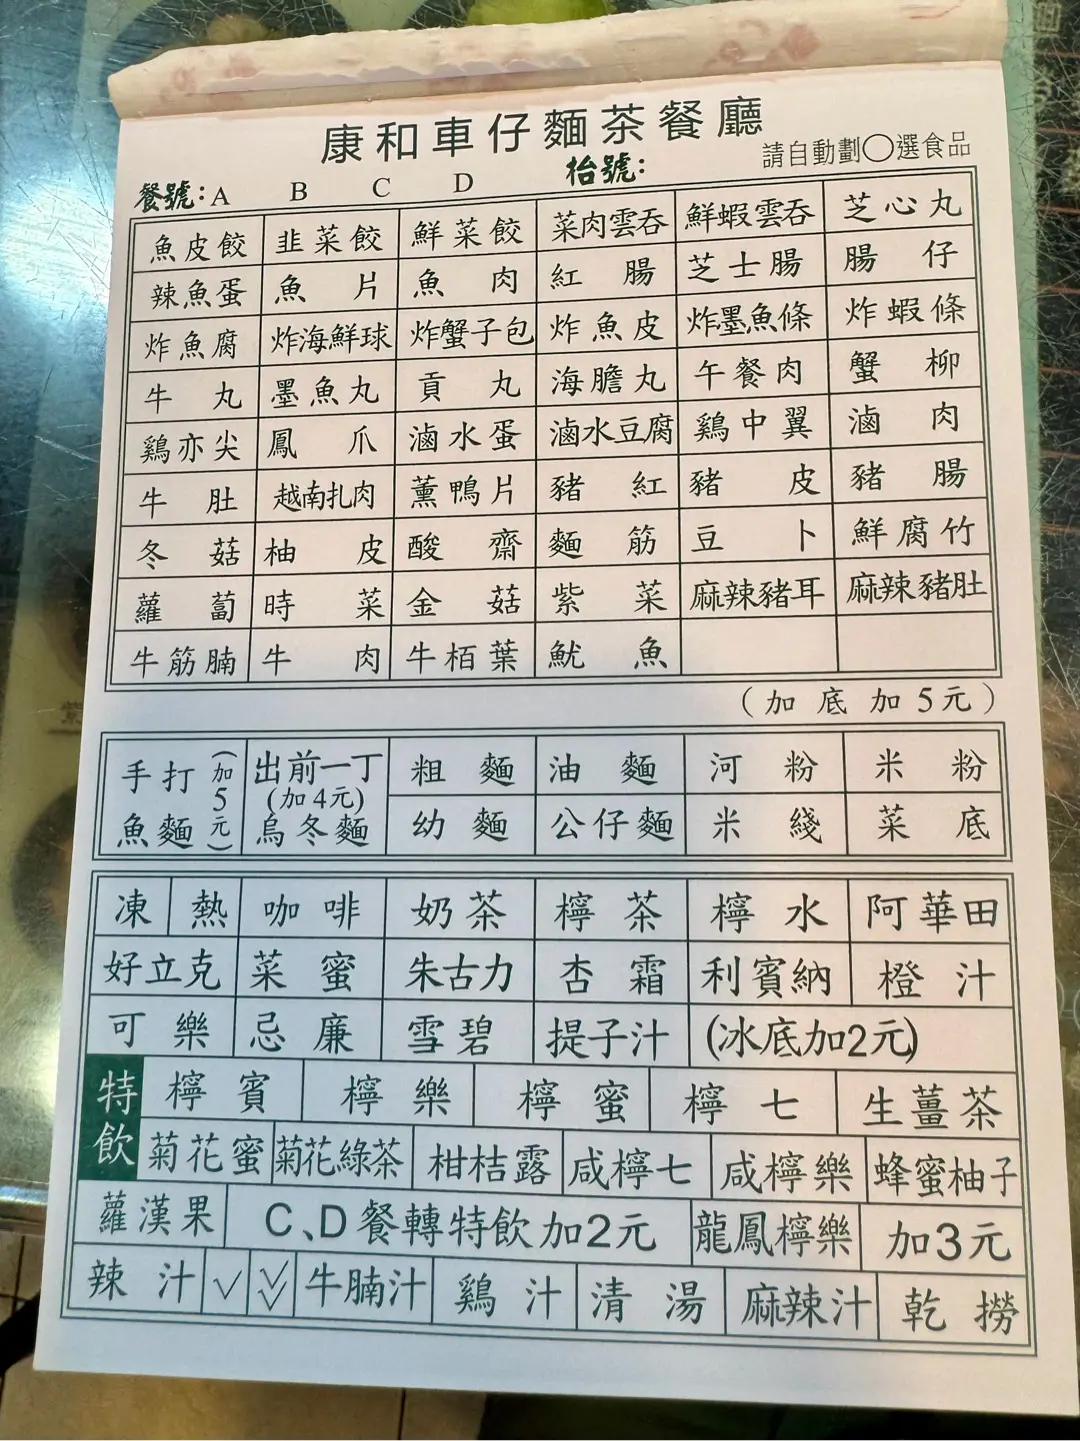 康和車仔麵茶餐廳
請自動劃○選食品
餐號:A B C D 枱號:
魚皮餃 韭菜餃 鮮菜餃 菜肉雲吞 鮮蝦雲吞 芝心丸
辣魚蛋 魚片 魚肉 紅腸 芝士腸 腸仔
炸魚腐 炸海鮮球 炸蟹子包 炸魚皮 炸墨魚條 炸蝦條
牛丸 墨魚丸 貢丸 海膽丸 午餐肉 蟹柳
鷄亦尖 鳳爪 滷水蛋 滷水豆腐 鷄中翼 滷肉
牛肚 越南扎肉 薰鴨片 豬紅 豬皮 豬腸
冬菇 柚皮 酸齋 麵筋 豆卜 鮮腐竹
蘿蔔 時菜 金菇 紫菜 麻辣豬耳 麻辣豬肚
牛筋腩 牛肉 牛栢葉 魷魚
(加底加5元)
手打魚麵(加5元) 出前一丁(加4元)烏冬麵 粗麵 油麵 河粉 米粉
幼麵 公仔麵 米綫 菜底
凍 熱 咖啡 奶茶 檸茶 檸水 阿華田
好立克 菜蜜 朱古力 杏霜 利賓納 橙汁
可樂 忌廉 雪碧 提子汁 (冰底加2元)
特飲 檸賓 檸樂 檸蜜 檸七 生薑茶
菊花蜜 菊花綠茶 柑桔露 咸檸七 咸檸樂 蜂蜜柚子
蘿漢果 C、D餐轉特飲加2元 龍鳳檸樂 加3元
辣汁 √ √√ 牛腩汁 鷄汁 清湯 麻辣汁 乾撈